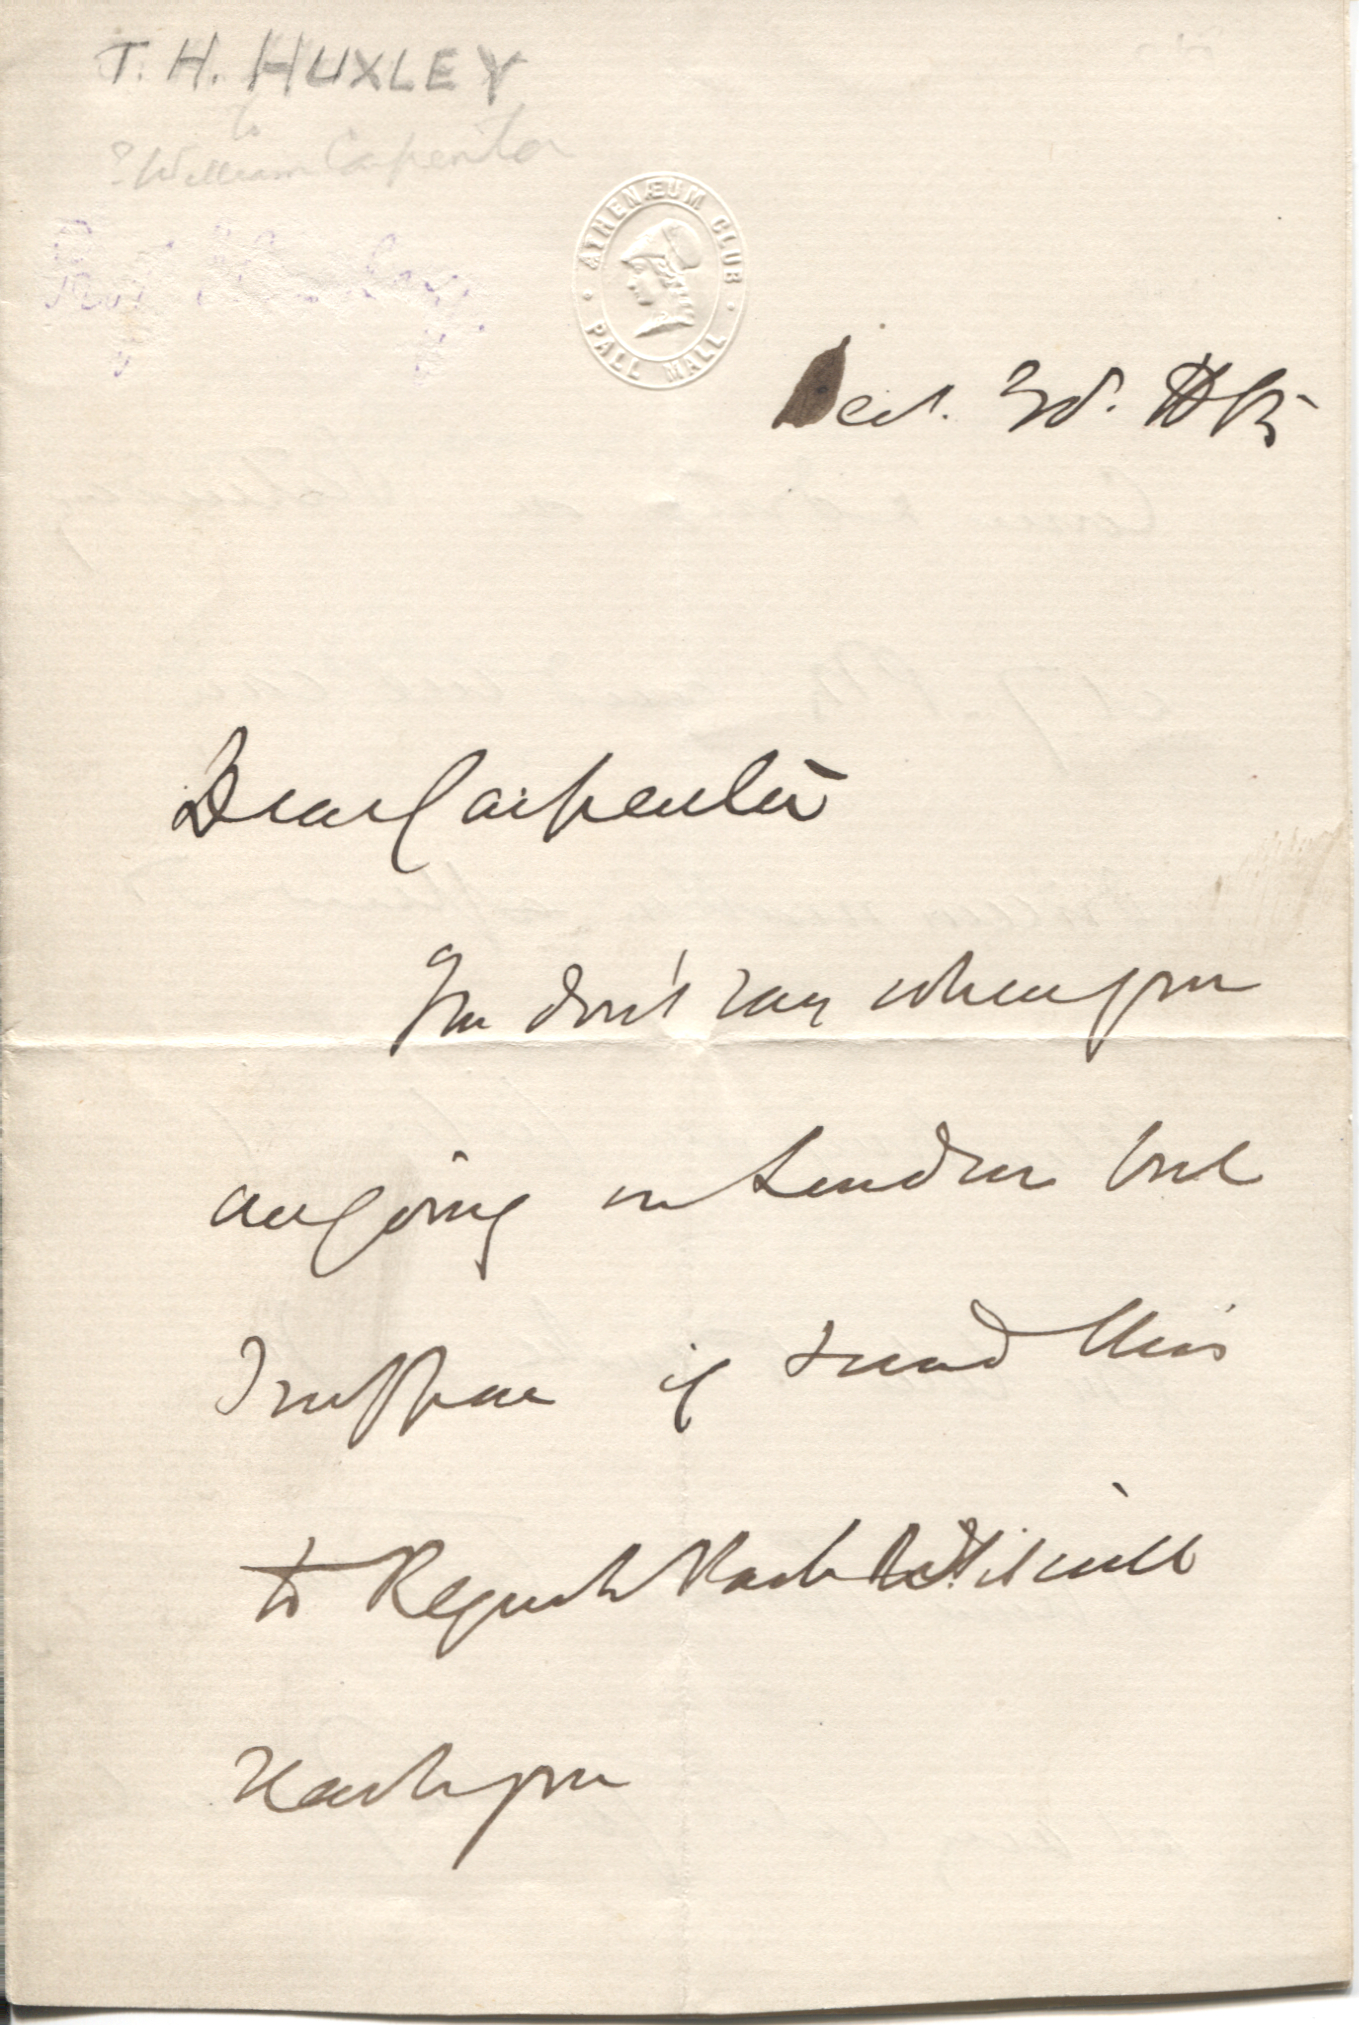 T. H. HUXLEY
to
? William Carpenter
Prof Huxley
ATHENÆUM CLUB
PALL MALL
Oct. 3d.
Dear Carpenter
You don't say when you
are going in London but
I suppose if I send this
to Regents Park Rd. it will
reach you